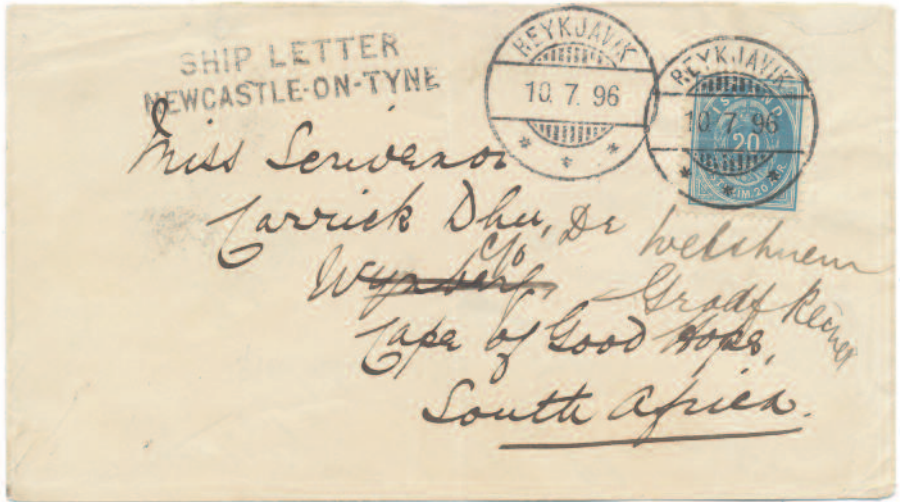 SHIP LETTER
NEWCASTLE-ON-TYNE
REYKJAVIK
10. 7. 96
REYKJAVIK
10. 7. 96
ISLAND
20
Miss Scrivenor
Carrick Dhu, De
c/o
Wynberg,
Graaf Reinet
Cape of Good Hope,
South Africa.